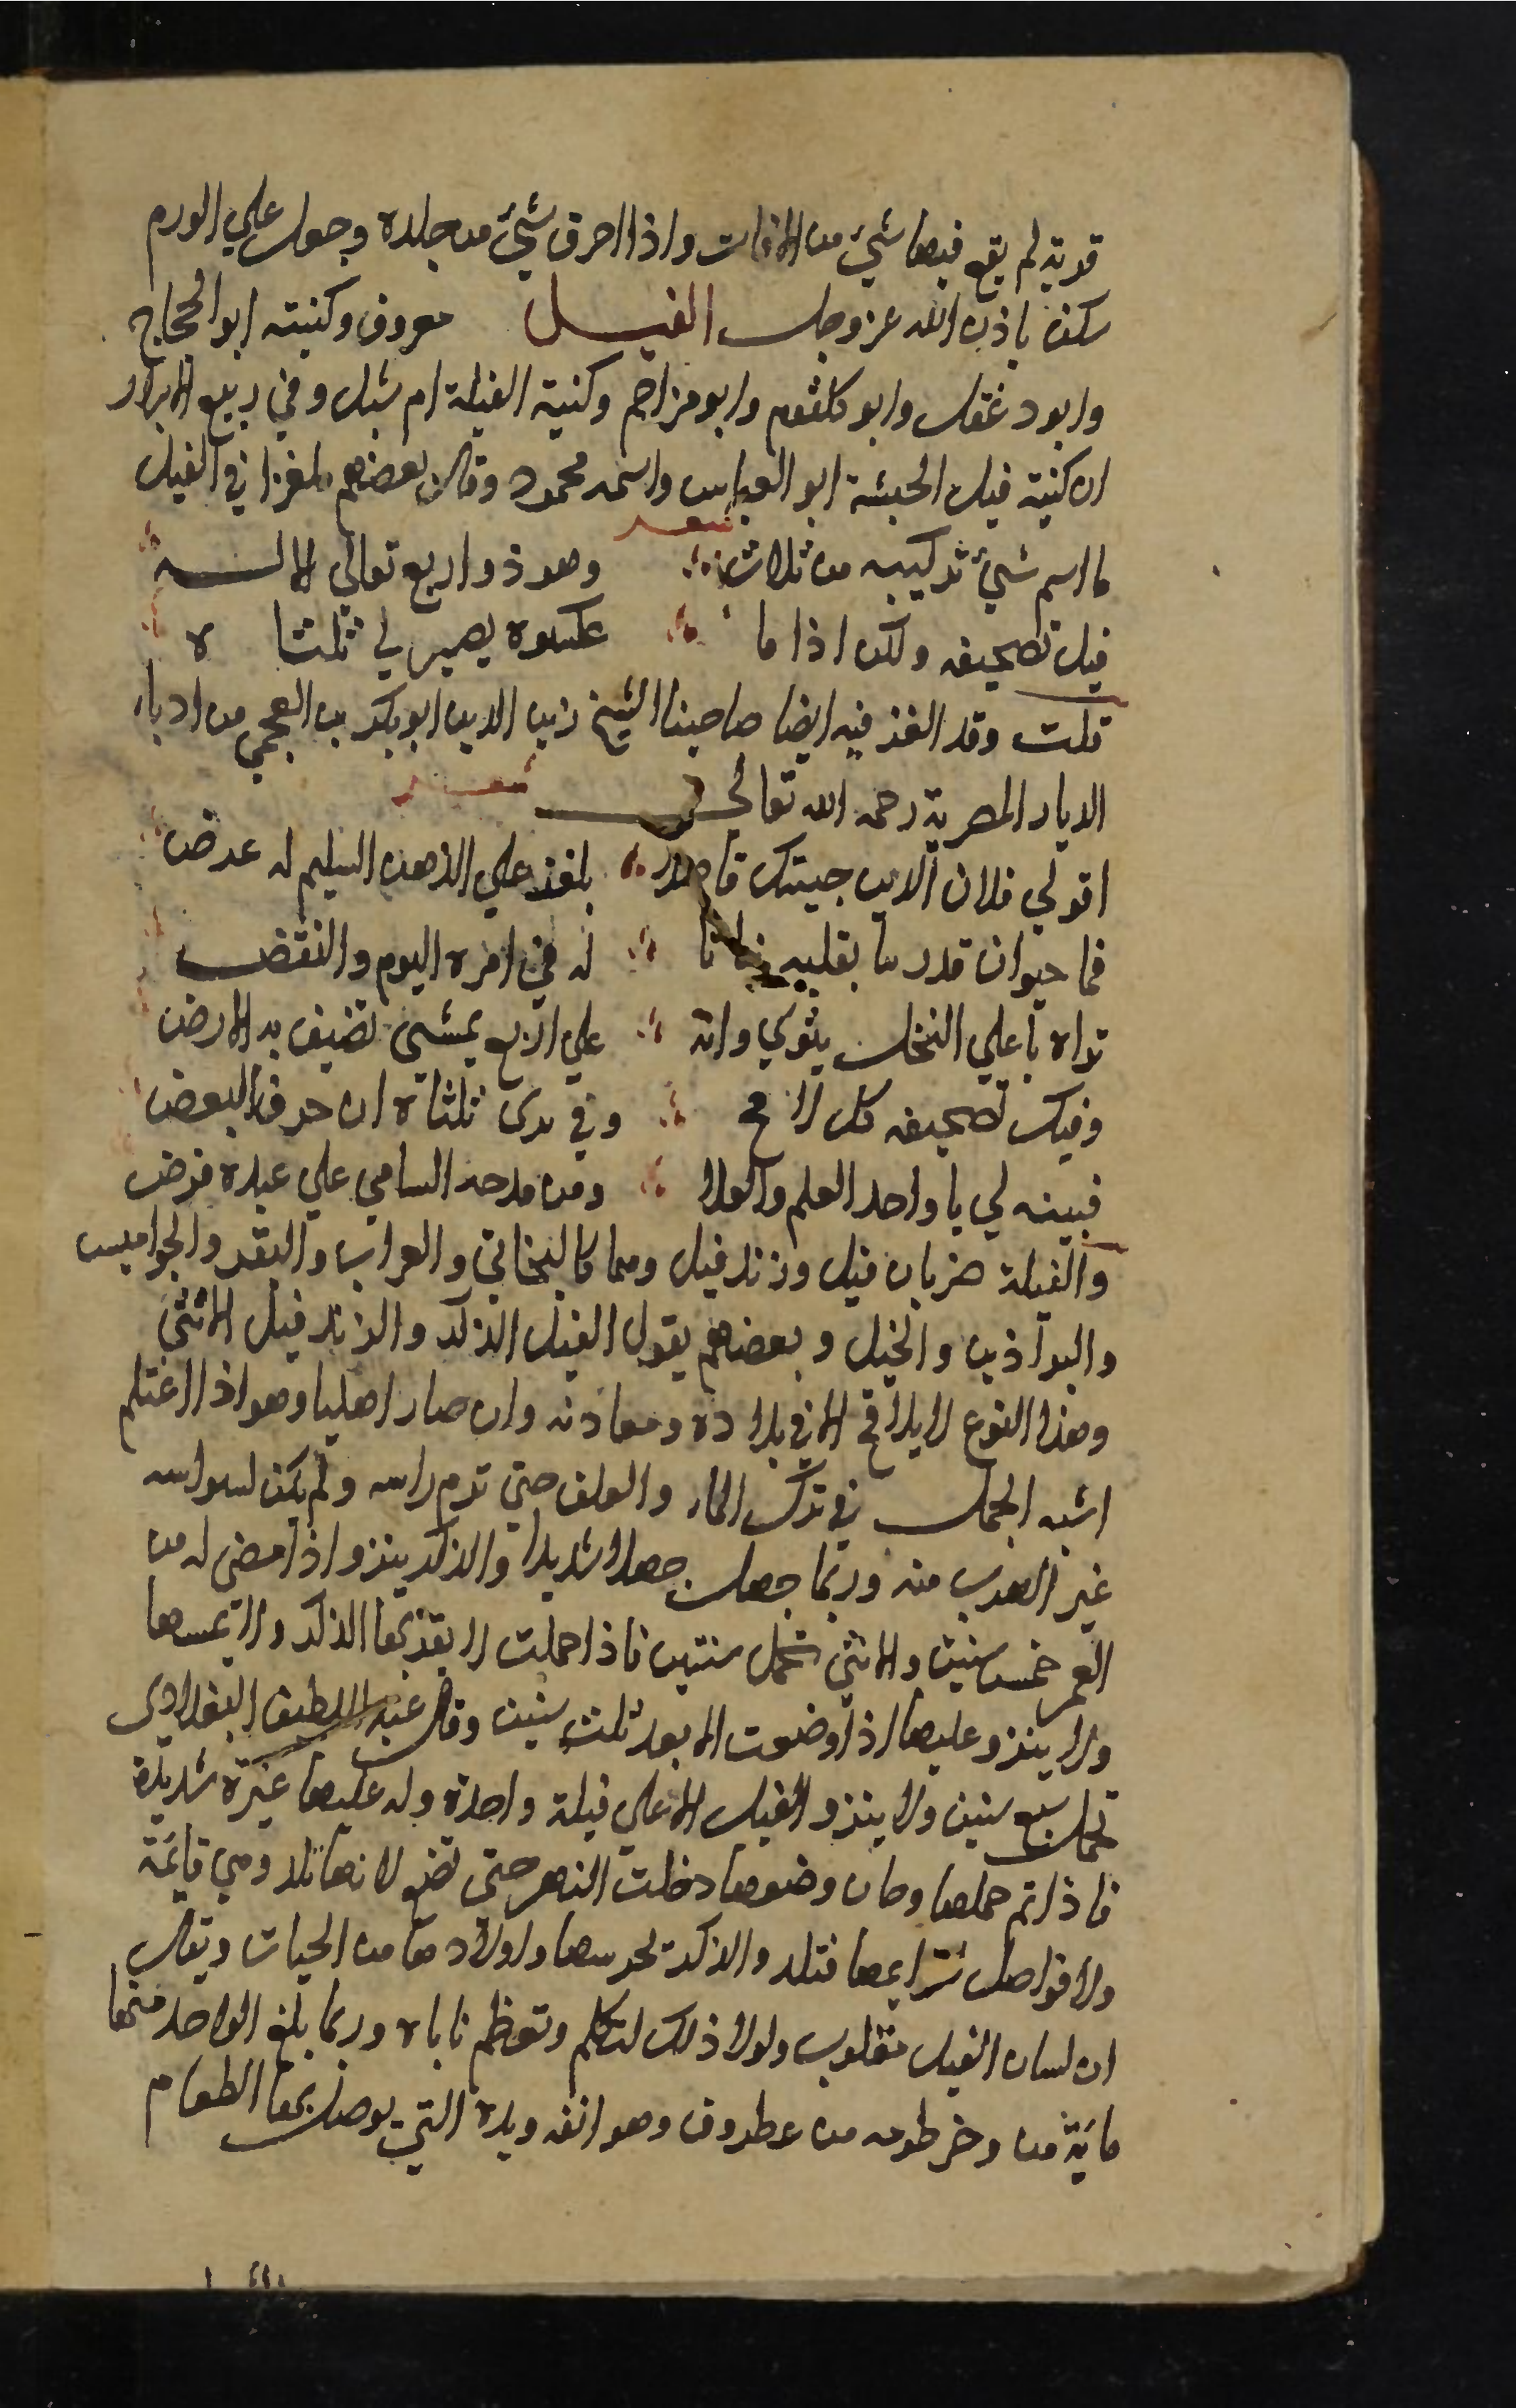 قرية لم يقع فيها شيء من الافات واذا احرق شيء من جلده وجعل علي الورم
سكن باذن الله عز وجل الفيل معروف وكنيته ابو الحجاج
وابو دغفل وابو كلثوم وابو مزاحم وكنية الفيلة ام شبل وفي ربيع الابرار
ان كنية فيل الحبشة ابو العباس واسمه محمود وقال بعضهم ملغزا في الفيل
شعر
ما اسم شيء تركيبه من ثلاث وهو ذو اربع تعالي الاله
فيل تصحيفه ولكن اذا ما عكسوه يصير لي ثلثاه
قلت وقد الغز فيه ايضا صاحبنا الشيخ زين الدين ابو بكر بن العجمي من ادباء
الديار المصرية رحمه الله تعالي شعر
اقولي فلان الدين جيتك قاصدا بلغز علي الذهن السليم له عرض
فما حيوان قدر سا بقلبه له في امره اليوم والنقض
تراه باعلي النخل يثوي وانه علي اربع يمشي تضيق به الارض
وفيك تصحيفه كل لاح وفي يدي ثلثاه ان حرف البعض
فبينه لي يا واحد العلم والعلا ومن مدحه السامي علي عبده فرض
والفيلة ضربان فيل وزندفيل وهما كالبخاتي والعراب والبقر والجواميس
والبراذين والخيل وبعضهم يقول الفيل الذكر والزندفيل الانثي
وهذا النوع لا يلاقح الا في بلاده ومعادنه وان صار اهليا وهو اذا اغتلم
اشبه الجمل في ترك الماء والعلف حتي تورم راسه ولم يكن لسواسه
غير الهرب منه وربما جهل جهلا شديدا والذكر ينزو اذا مضي له من
العمر خمس سنين والانثي تحمل سنتين فاذا حملت لا يقربها الذكر ولا يمسها
ولا ينزو عليها اذا وضعت الا بعد ثلث سنين وقال عبد اللطيف البغدادي
تحمل سبع سنين ولا ينزو الفيل الا علي فيلة واحدة وله عليها غيرة شديدة
فاذا تم حملها وحان وضعها دخلت النهر حتي تضع لانها تلد وهي قايمة
ولا فواصل لقوايمها فتلد والذكر يحرسها واولادها من الحيات ويقال
ان لسان الفيل مقلوب ولولا ذلك لتكلم وتعظم ناباه وربما بلغ الواحد منهما
ماية من وخرطومه من غطروف وهو انفه ويده التي يوصل بها الطعام